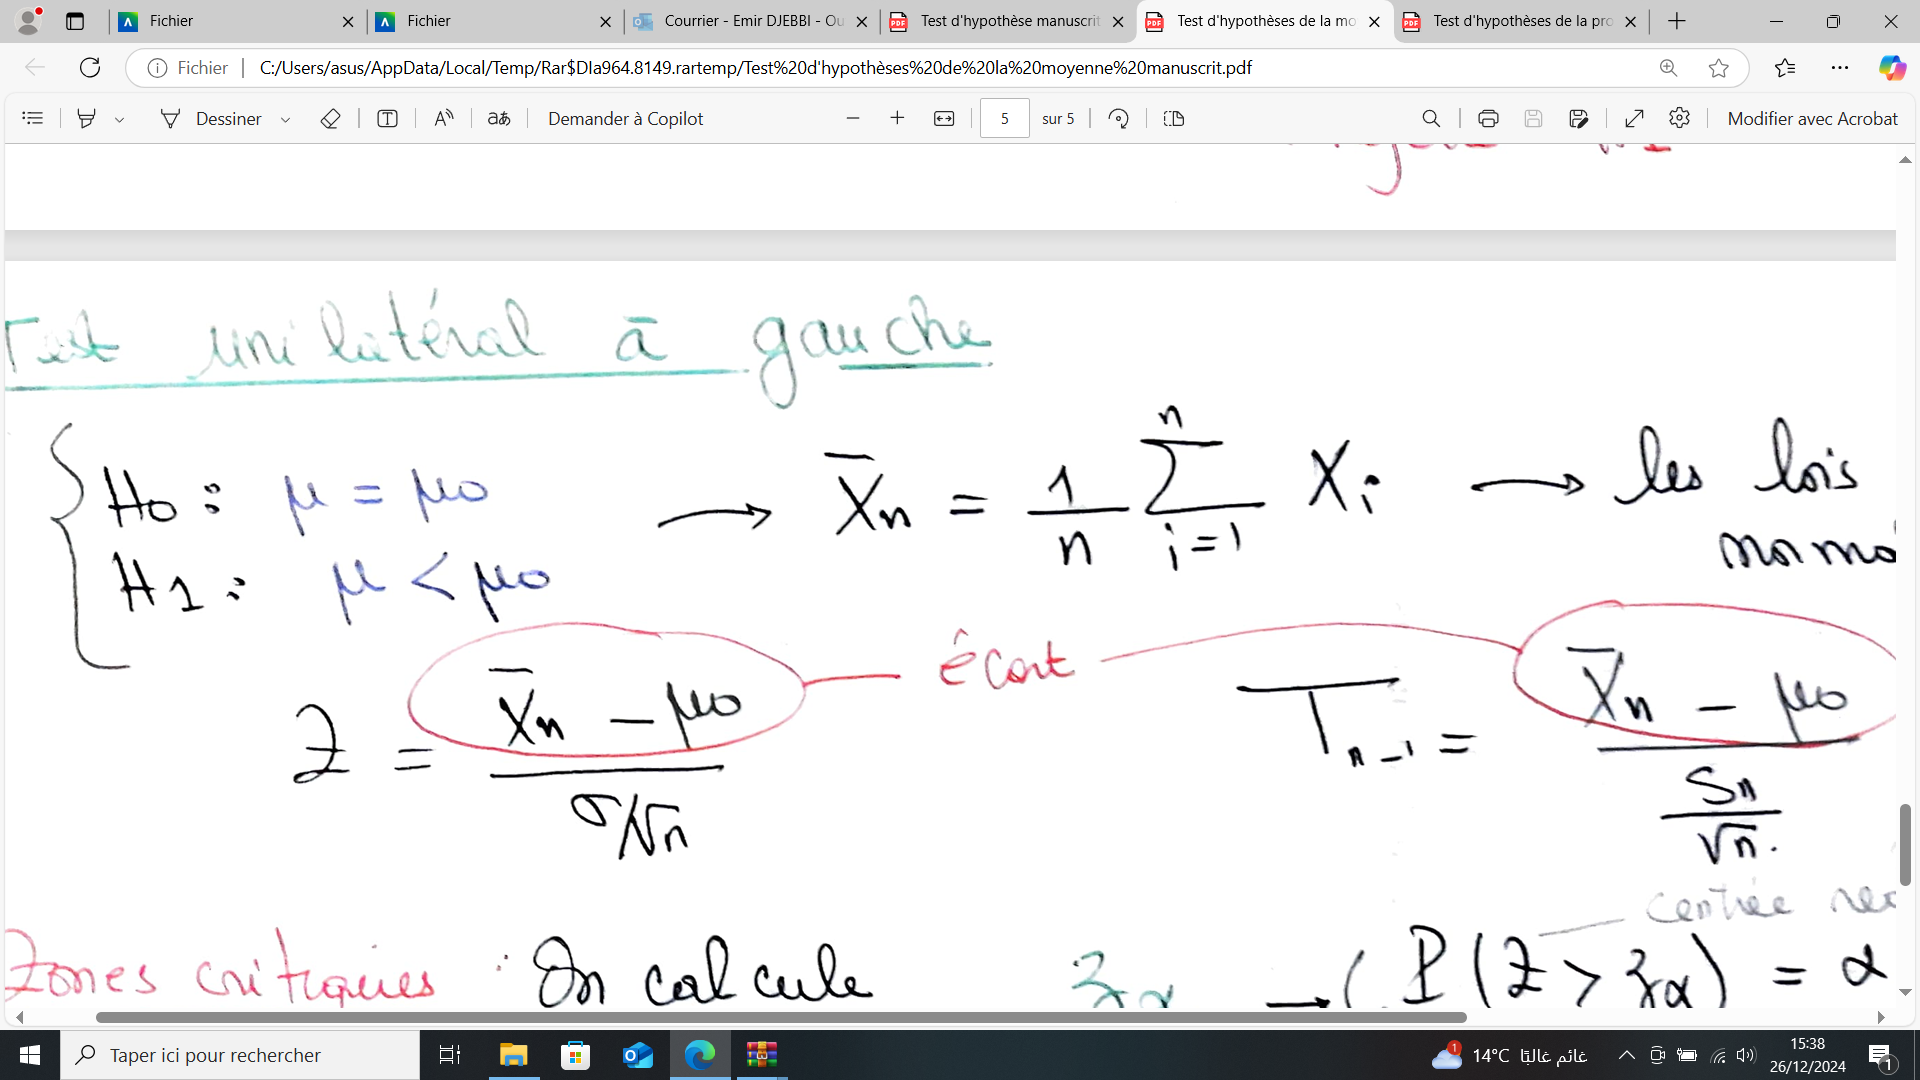 Fichier
Fichier
Courrier - Emir DJEBBI - Ou
Test d'hypothèse manuscrit
Test d'hypothèses de la mo
Test d'hypothèses de la pro
Fichier
C:/Users/asus/AppData/Local/Temp/Rar$DIa964.8149.rartemp/Test%20d'hypothèses%20de%20la%20moyenne%20manuscrit.pdf
Dessiner
aあ
Demander à Copilot
5 sur 5
Modifier avec Acrobat
Test unilatéral à gauche
H0 : μ = μ0 → X̄n = 1/n Σ_{i=1}^{n} Xi → les lois
H1 : μ < μ0
écart
Z = (X̄n − μ0) / (σ/√n)
T_{n−1} = (X̄n − μ0) / (Sn/√n)
centrée
Zones critiques : On calcule zα → ( P(Z > zα) = α
Taper ici pour rechercher
14°C غائم غالبًا
15:38
26/12/2024
1
1